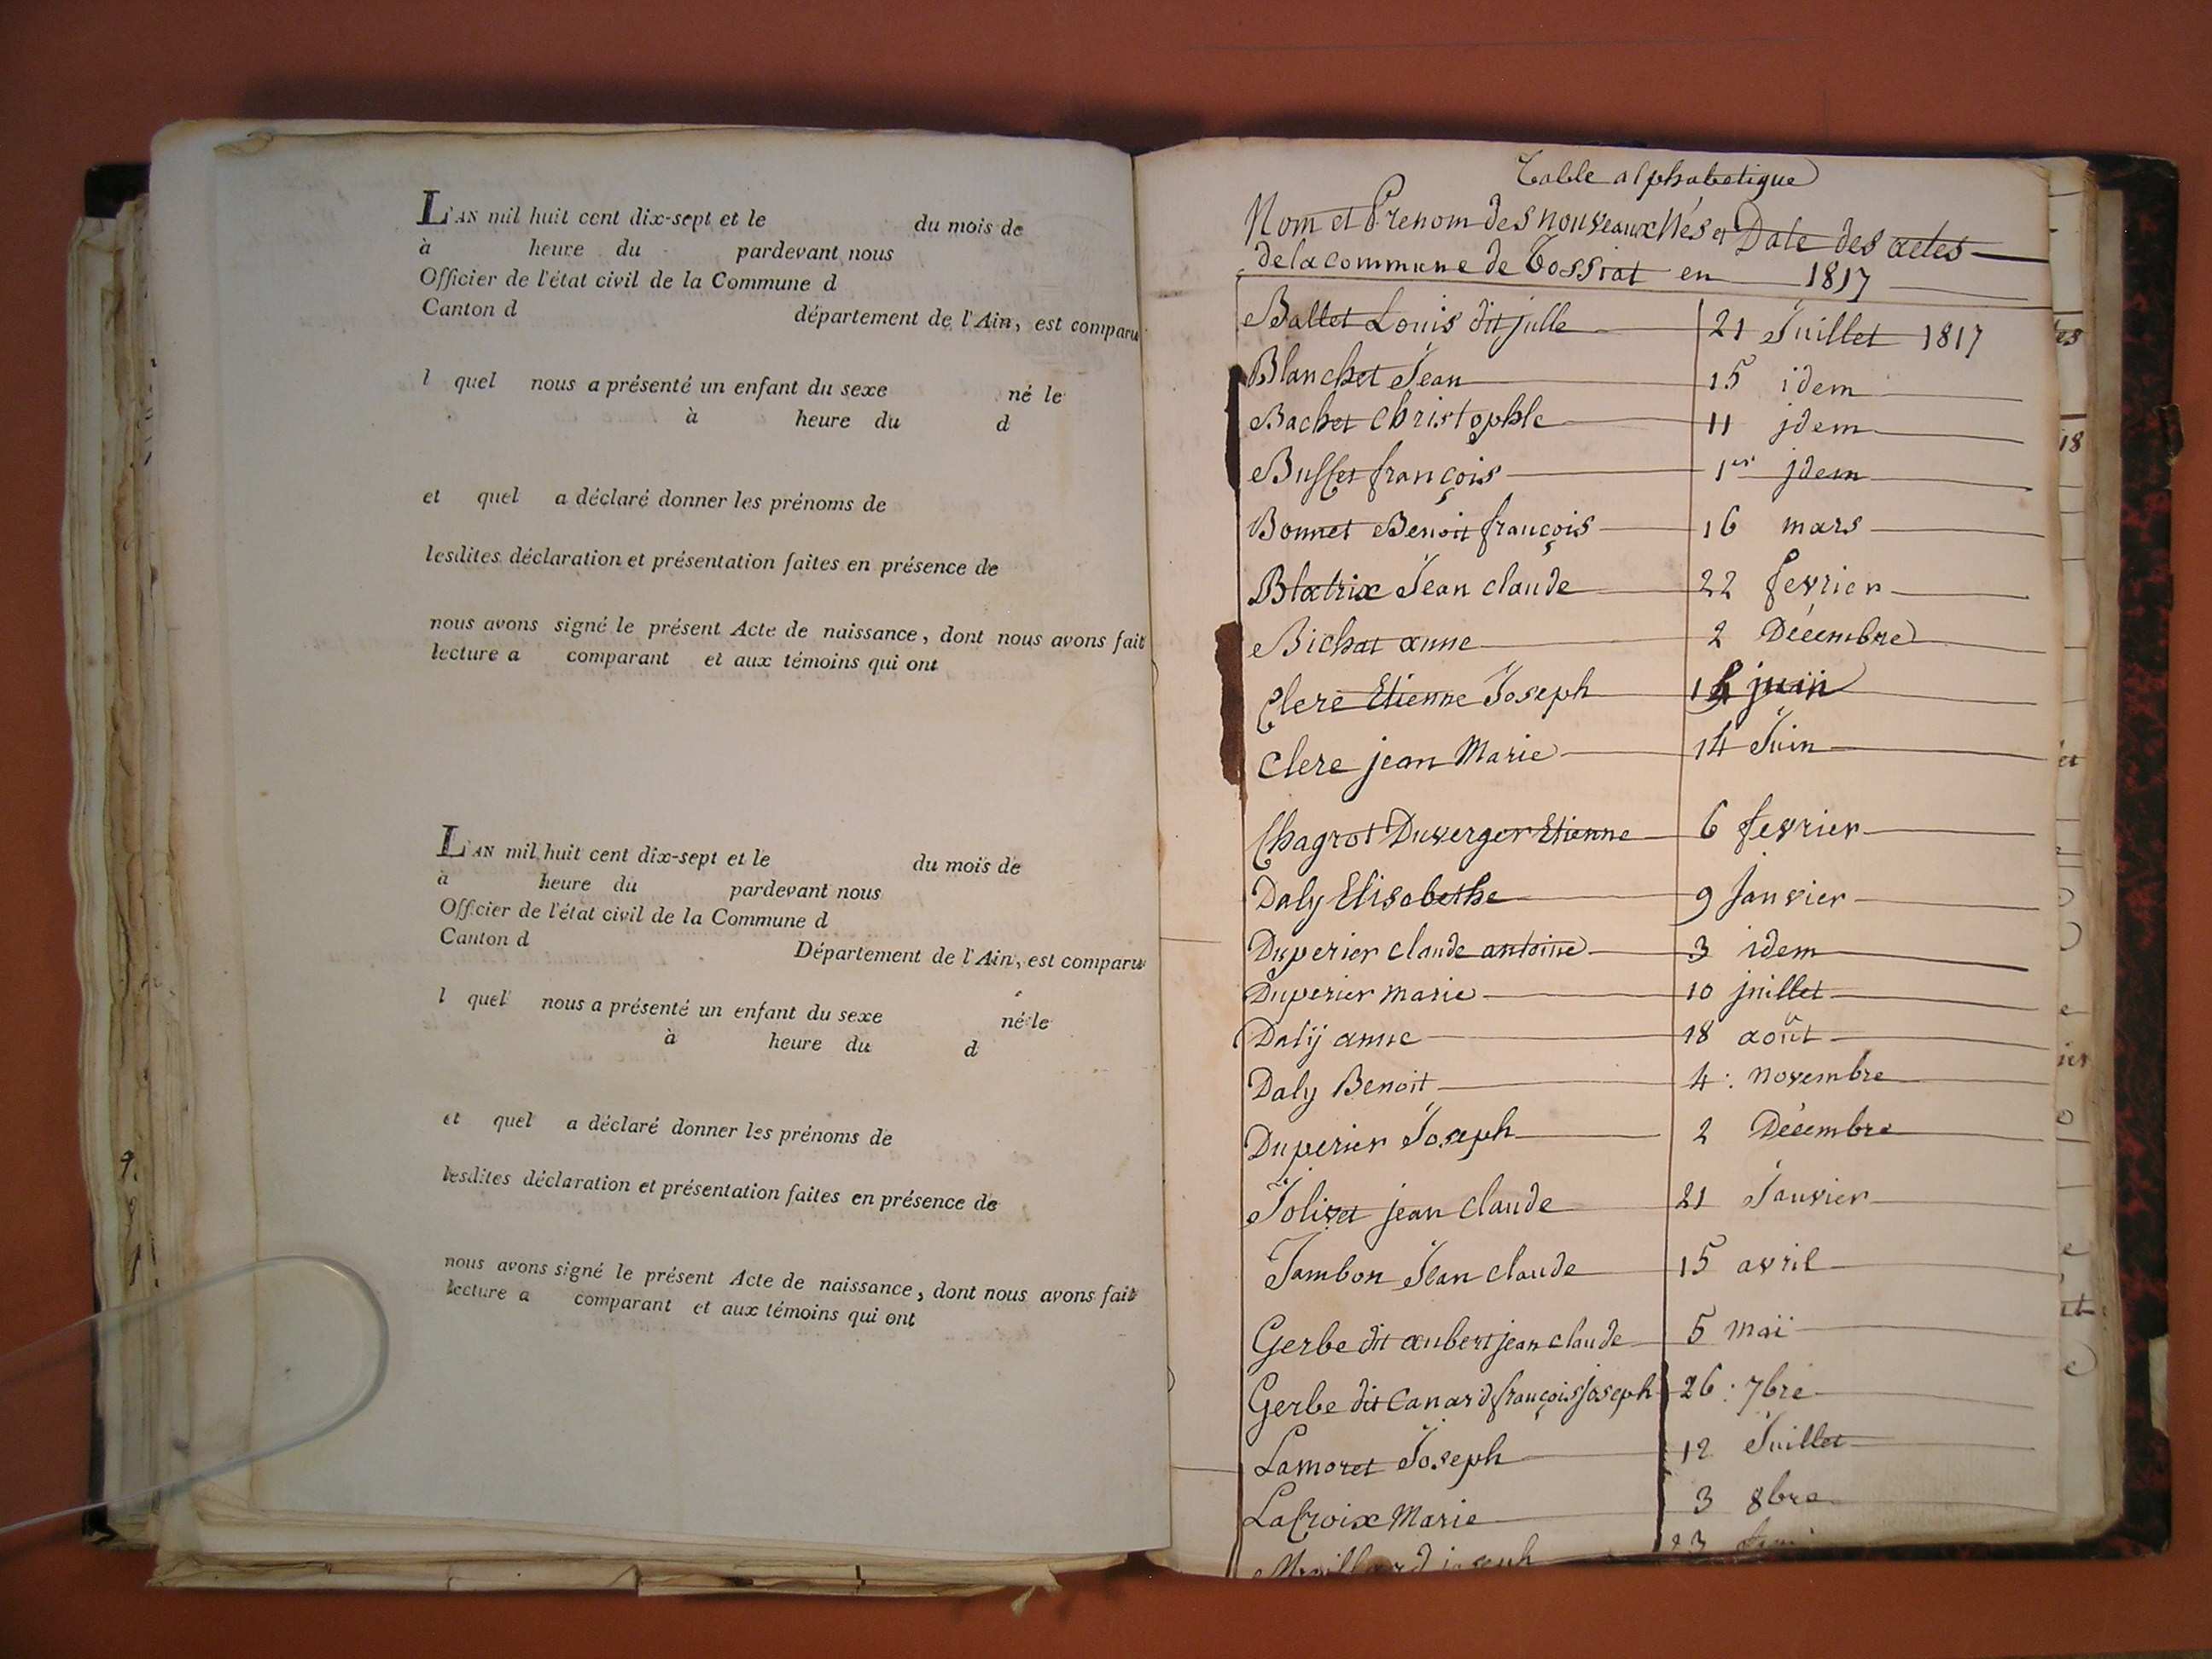 L'AN mil huit cent dix-sept et le du mois de
à heure du pardevant nous
Officier de l'état civil de la Commune d
Canton d département de l'Ain, est comparu
l quel nous a présenté un enfant du sexe né le
à heure du d
et quel a déclaré donner les prénoms de
lesdites déclaration et présentation faites en présence de
nous avons signé le présent Acte de naissance, dont nous avons fait
lecture a comparant et aux témoins qui ont
L'AN mil huit cent dix-sept et le du mois de
à heure du pardevant nous
Officier de l'état civil de la Commune d
Canton d Département de l'Ain, est comparu
l quel nous a présenté un enfant du sexe né le
à heure du d
et quel a déclaré donner les prénoms de
lesdites déclaration et présentation faites en présence de
nous avons signé le présent Acte de naissance, dont nous avons fait
lecture a comparant et aux témoins qui ont
Table alphabetique
Nom et Prenom des nouveaux Nés et Date des actes
de la commune de Tossiat en 1817
Ballet Louis dit julle 21 Juillet 1817
Blanchet Jean 15 idem
Bachet Christophle 11 jdem
Buffet françois 1er jdem
Bonnet Benoit françois 16 mars
Blatrix Jean claude 22 fevrier
Bichat anne 2 Décembre
Clere Etienne Joseph juin
Clere jean Marie 14 Juin
Chagrot Duverger Etienne 6 fevrier
Daly Elisabethe 9 Janvier
Duperier claude antoine 3 idem
Duperier marie 10 juillet
Dalÿ anne 18 août
Daly Benoit 4 : novembre
Duperier Joseph 2 Décembre
Jolivet jean claude 21 Janvier
Jambon Jean claude 15 avril
Gerbe dit aubert jean claude 5 mai
Gerbe dit Canard françois Joseph 26 : 7bre
Lamoret Joseph 12 Juillet
LaCroix Marie 3 8bre
joseph 23